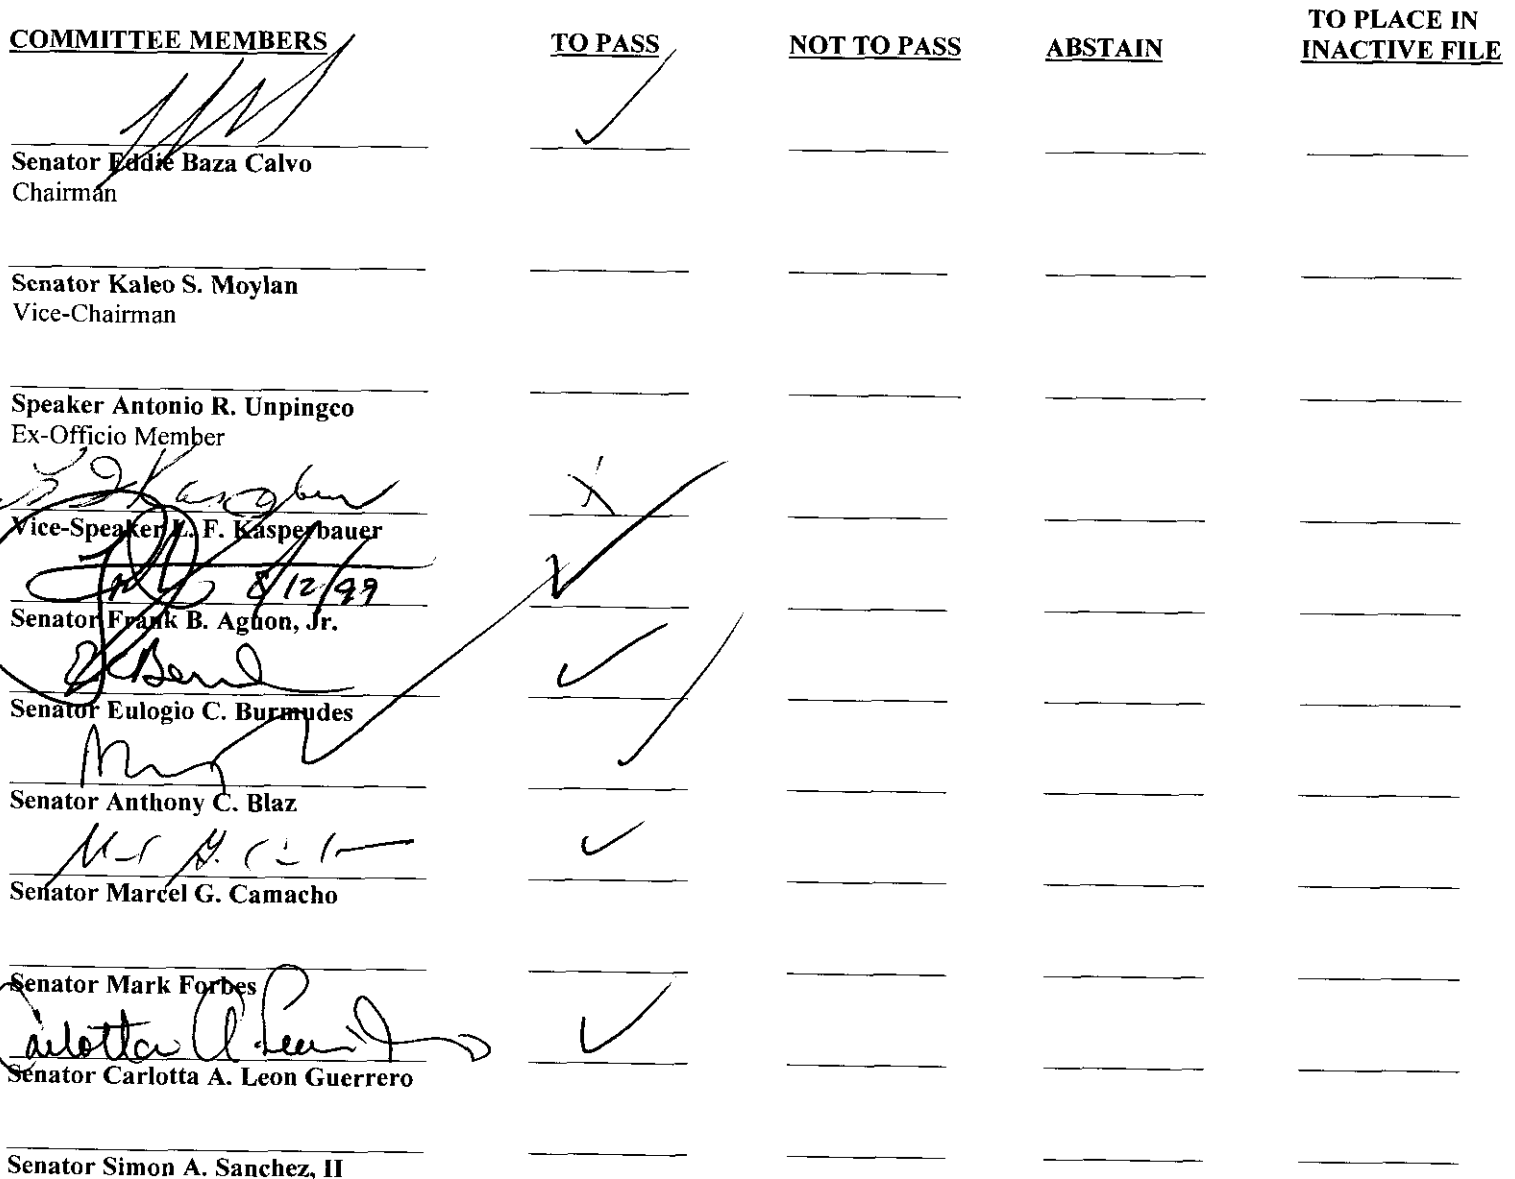 COMMITTEE MEMBERS TO PASS NOT TO PASS ABSTAIN TO PLACE IN
INACTIVE FILE
Senator Eddie Baza Calvo
Chairman
Senator Kaleo S. Moylan
Vice-Chairman
Speaker Antonio R. Unpingco
Ex-Officio Member
Vice-Speaker L. F. Kasperbauer
8/12/99
Senator Frank B. Aguon, Jr.
Senator Eulogio C. Burmudes
Senator Anthony C. Blaz
Senator Marcel G. Camacho
Senator Mark Forbes
Carlotta A. Leon
Senator Carlotta A. Leon Guerrero
Senator Simon A. Sanchez, II